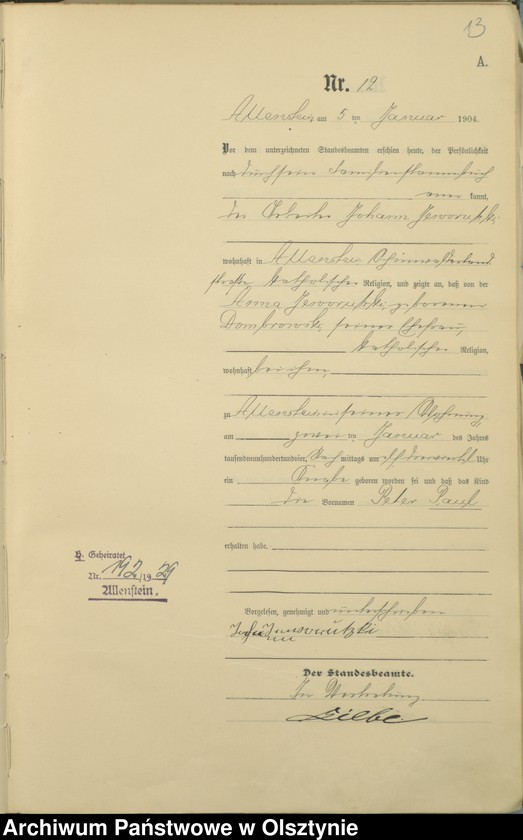 13
A.
Nr. 12
Allenstein, am 5 ten Januar 1904.
Vor dem unterzeichneten Standesbeamten erschien heute, der Persönlichkeit
nach durch sein Familienstammbuch
kannt,
der Arbeiter Johann
wohnhaft in Allenstein
straße katholischer Religion, und zeigte an, daß von der
Anna geborenen
Dombrowski, seiner Ehefrau,
katholischer Religion,
wohnhaft bei ihm,
zu Allenstein in seiner Wohnung,
am zwei ten Januar des Jahres
tausendneunhundertundvier, Nachmittags um Uhr
ein Knabe geboren worden sei und daß das Kind
die Vornamen Peter Paul
erhalten habe.
H. Geheiratet
Nr. 192/1929
Allenstein.
Vorgelesen, genehmigt und unterschrieben
Der Standesbeamte.
In Vertretung
Archiwum Państwowe w Olsztynie